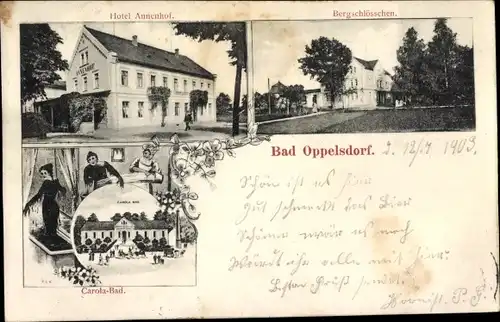 Hotel Annenhof.
Bergschlösschen.
Bad Oppelsdorf. d. 12/4 1903.
CAROLA BAD
Carola-Bad.
Schön ist es hier
Gut schmeckt das Bier
Schöner wär es noch
Würdet ihr alle mit hier.
Besten Gruß sendet